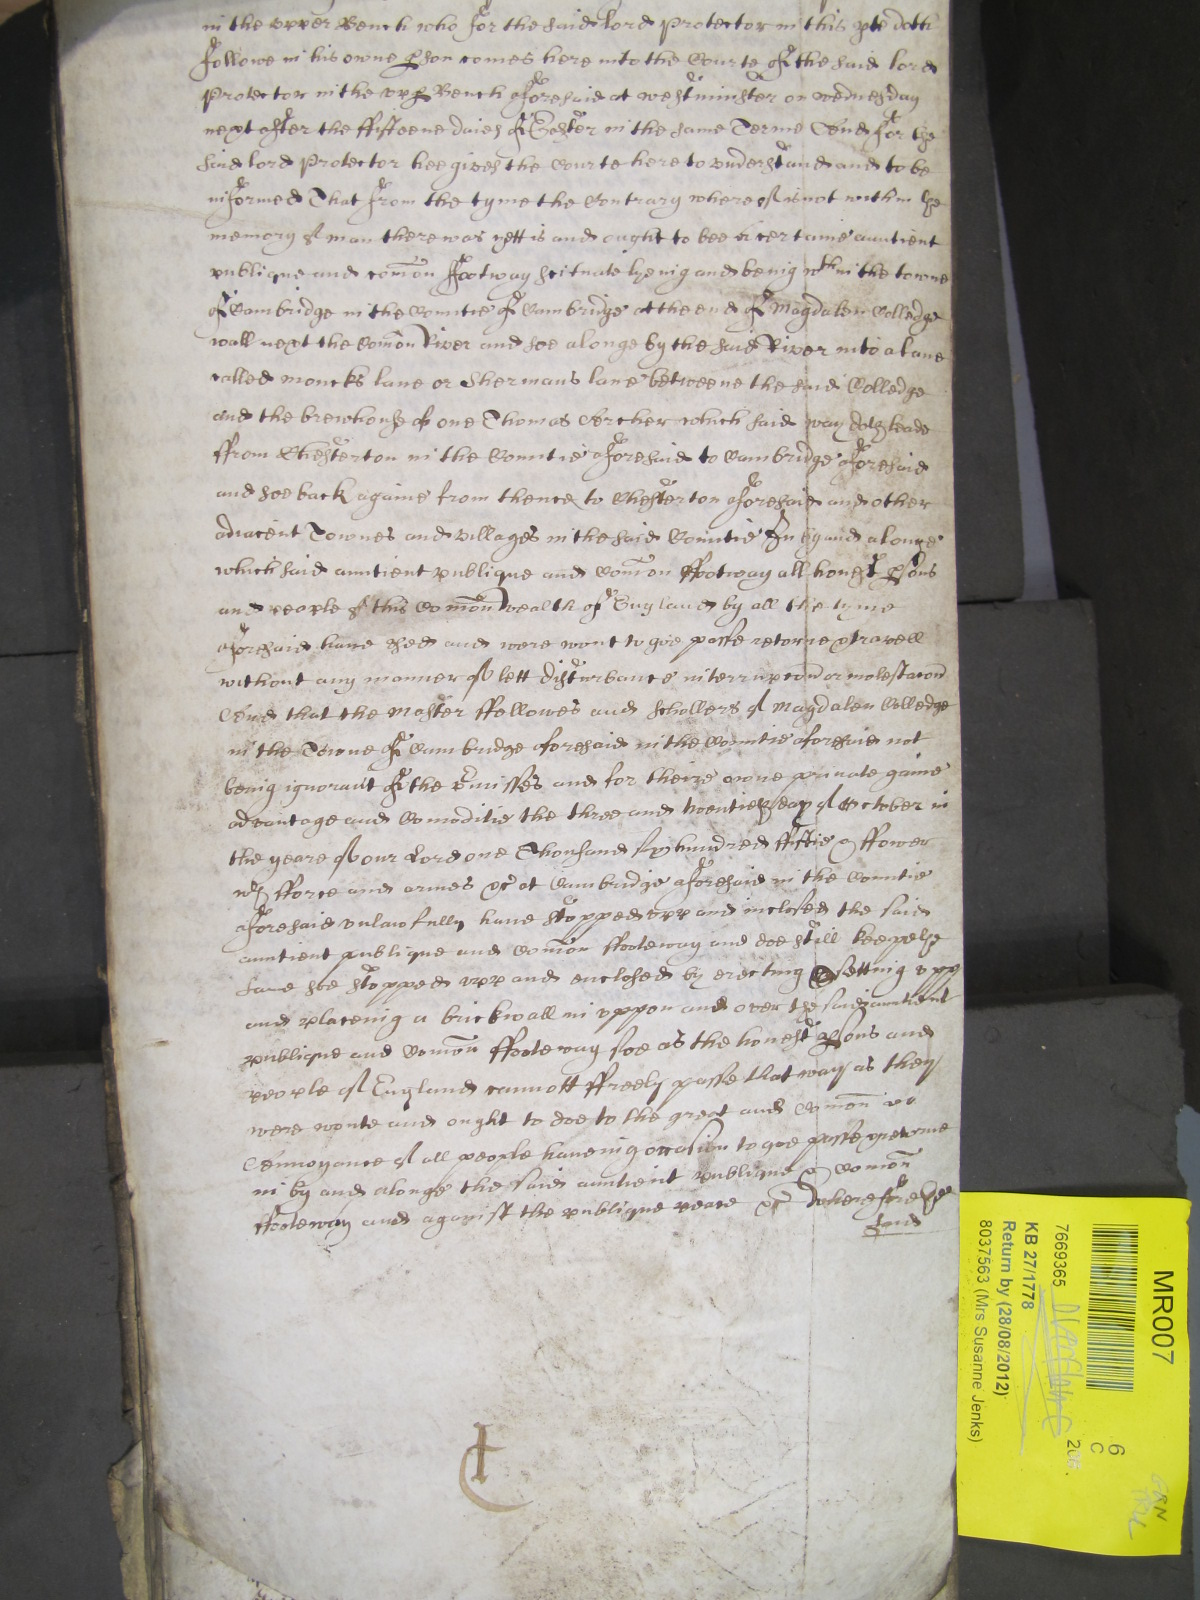 in the vpper Bench who for the said Lord Protector in this pte doth
followe in his owne pson comes here into the Courte of the said lord
Protector in the vpp Bench aforesaid at westminster on wednesday
next after the ffifteene daies of Easter in the same Terme And for the
said lord Protector hee gives the Courte here to vnderstand and to be
informed That from the tyme the Contrary whereof is not within the
memory of man there was yett is and ought to bee a certaine auntient
publique and comon ffootway scituate lyeing and being wthin the towne
of Cambridge in the Countie of Cambridge at the end of Magdalen Colledge
wall next the Comon River and soe alonge by the said River into a lane
called moncks lane or Shermans lane betweene the said Colledge
and the brewhouse of one Thomas Archer which said way doth leade
ffrom Chesterton in the Countie aforesaid to Cambridge aforesaid
and soe back againe from thence to Chesterton aforesaid and other
adiacent Townes and villages in the said Countie In by and alonge
which said auntient publique and Comon ffootway all honest psons
and people of this Comonwealth of England by all the tyme
aforesaid have vsed and were wont to goe passe retorne & travell
without any manner of lett disturbance interrupcon or molestacon
And that the Master ffellowes and Schollers of Magdalen Colledge
in the Towne of Cambridge aforesaid in the Countie aforesaid not
being ignorant of the Pmisses and for theire owne private gaine
advantage and Comoditie the three and twentieth day of October in
the yeare of our Lord one Thousand six hundred ffiftie & ffower
wth fforce and armes &c at Cambridge aforesaid in the Countie
aforesaid vnlawfully have stopped vpp and inclosed the said
auntient publique and Comon ffooteway and doe still keepe the
same soe stopped vpp and enclosed by erecting & setting vpp
and placeing a brickwall in vppon and over the said auntient
publique and Comon ffooteway soe as the honest psons and
people of England cannott ffreely passe that way as they
were wonte and ought to doe to the great and Comon
Annoyance of all people haveing occasion to goe passe & retorne
in by and alonge the said auntient publique & Comon
ffooteway and against the publique peace &c Wherefore the
said
MR007
6
C
7669365
KB 27/1778
Return by (28/08/2012)
8037563 (Mrs Susanne Jenks)